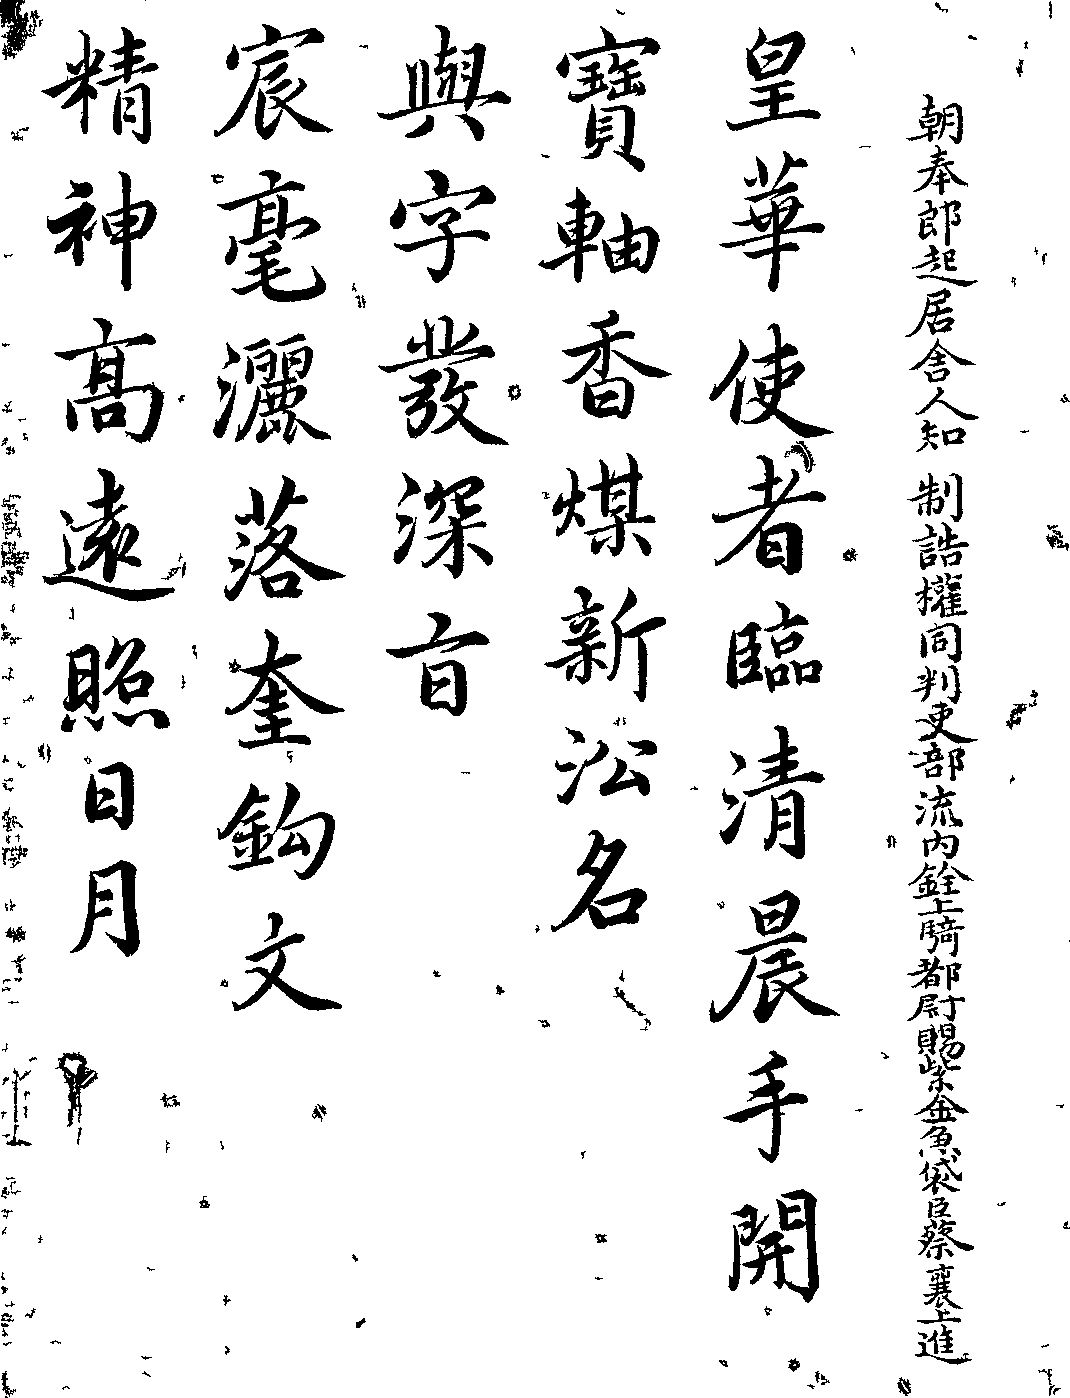 朝奉郎起居舍人知 制誥權同判吏部流内銓上騎都尉賜紫金魚袋臣蔡襄上進
皇華使者臨清晨手開
寶軸香煤新㳂名
與字發深旨
宸毫灑落奎鈎文
精神髙遠照日月